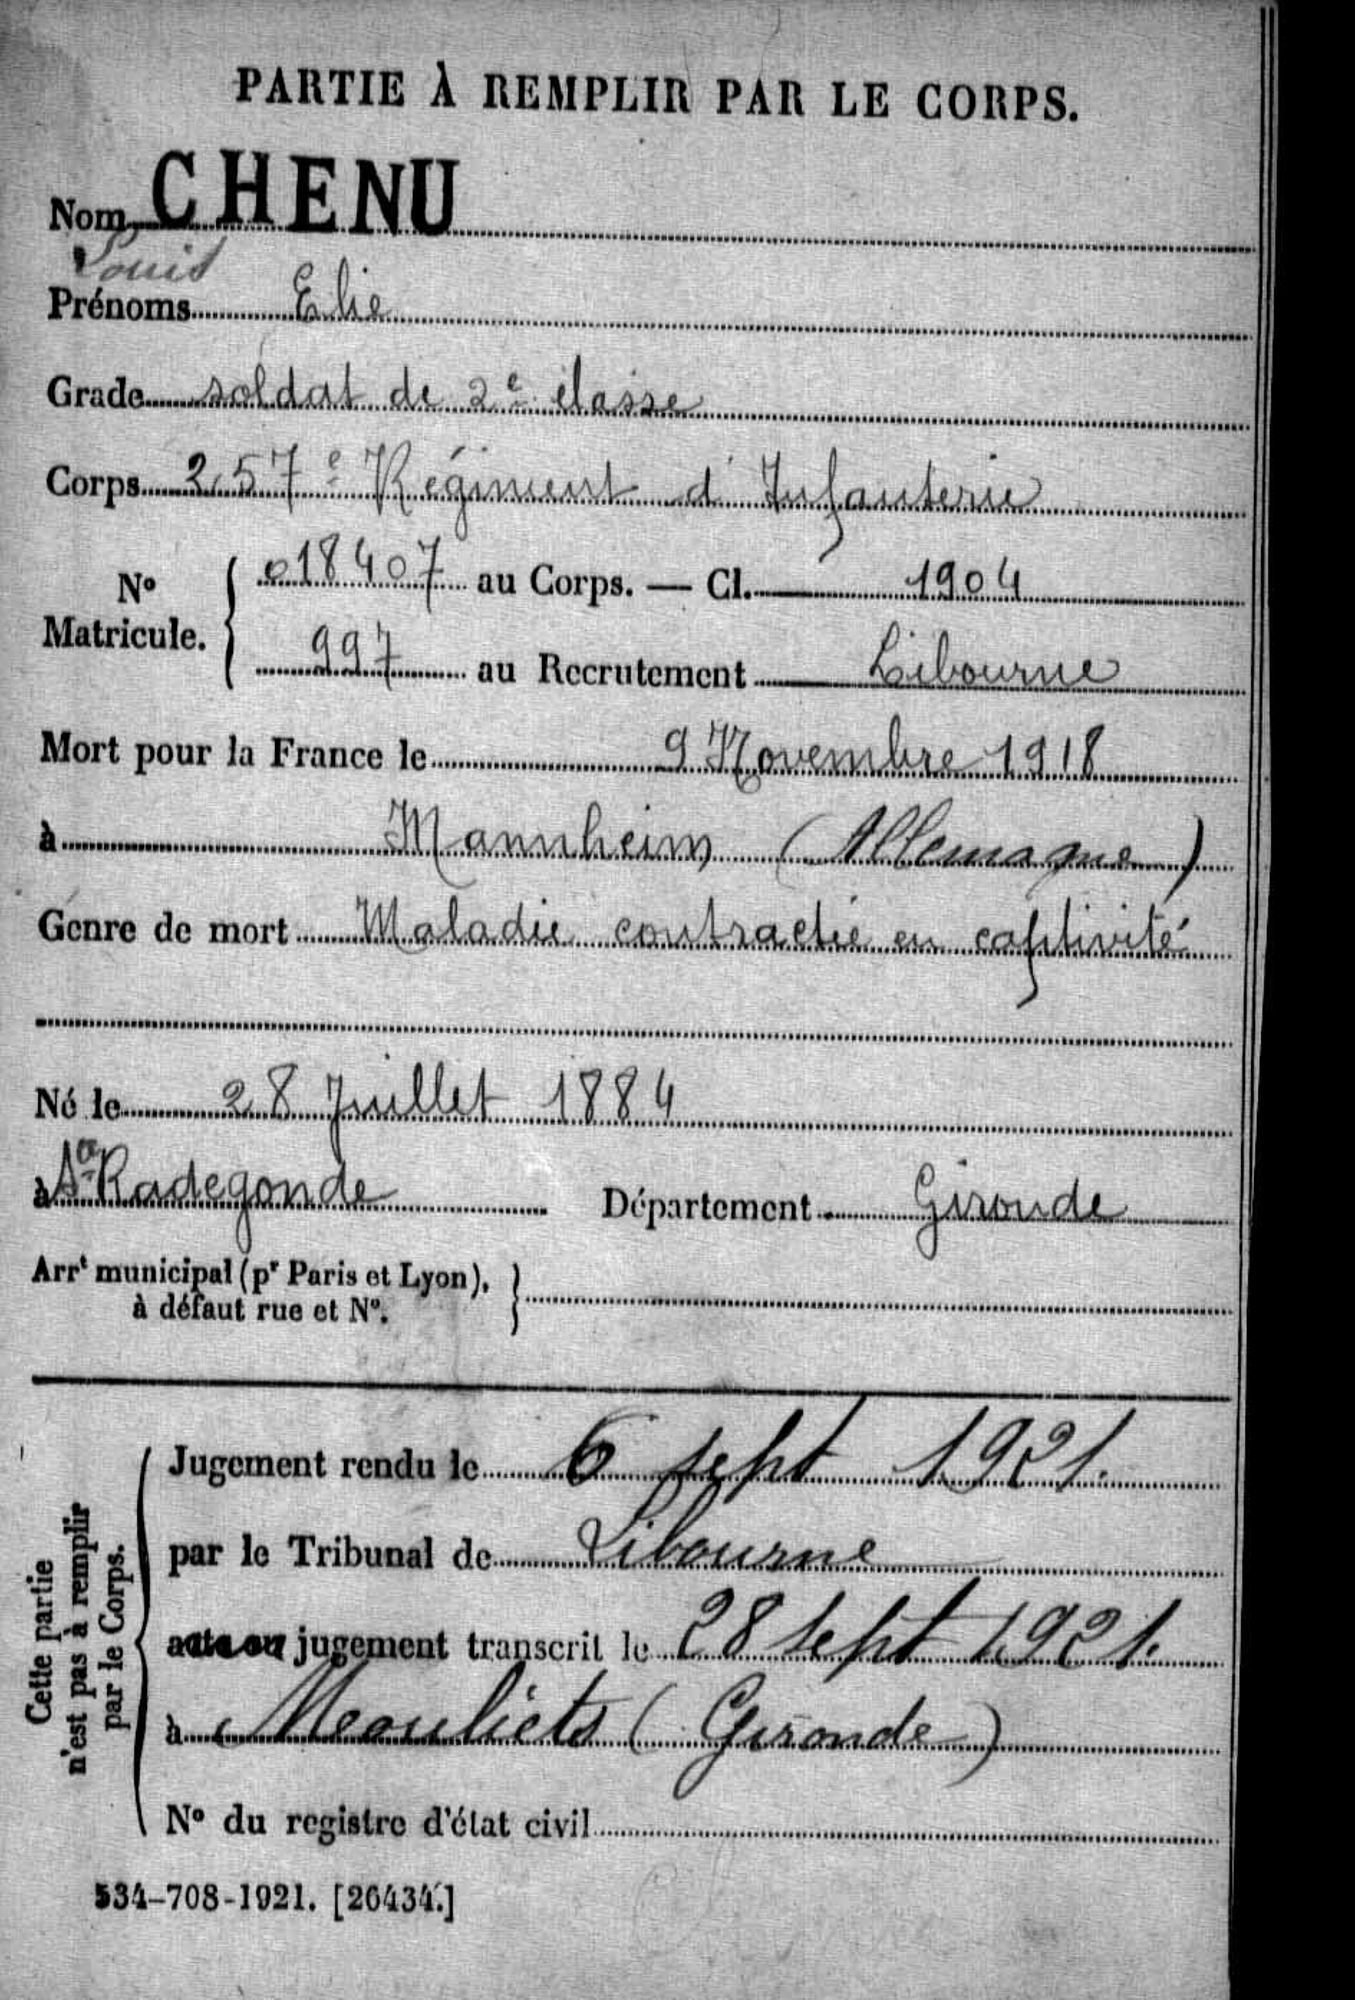 PARTIE À REMPLIR PAR LE CORPS.
Nom CHENU
Louis
Prénoms Elie
Grade soldat de 2e classe
Corps 257e Régiment d'Infanterie
No Matricule. { 018407 au Corps. — Cl. 1904
997 au Recrutement Libourne
Mort pour la France le 9 Novembre 1918
à Mannheim (Allemagne)
Genre de mort Maladie contractée en captivité
Né le 28 Juillet 1884
à Ste Radegonde Département Gironde
Arrt municipal (pr Paris et Lyon), }
à défaut rue et No.
Cette partie
n'est pas à remplir
par le Corps.
Jugement rendu le 6 sept 1921.
par le Tribunal de Libourne
acte ou jugement transcrit le 28 sept 1921.
à Mouliets (Gironde)
No du registre d'état civil
534-708-1921. [26434.]